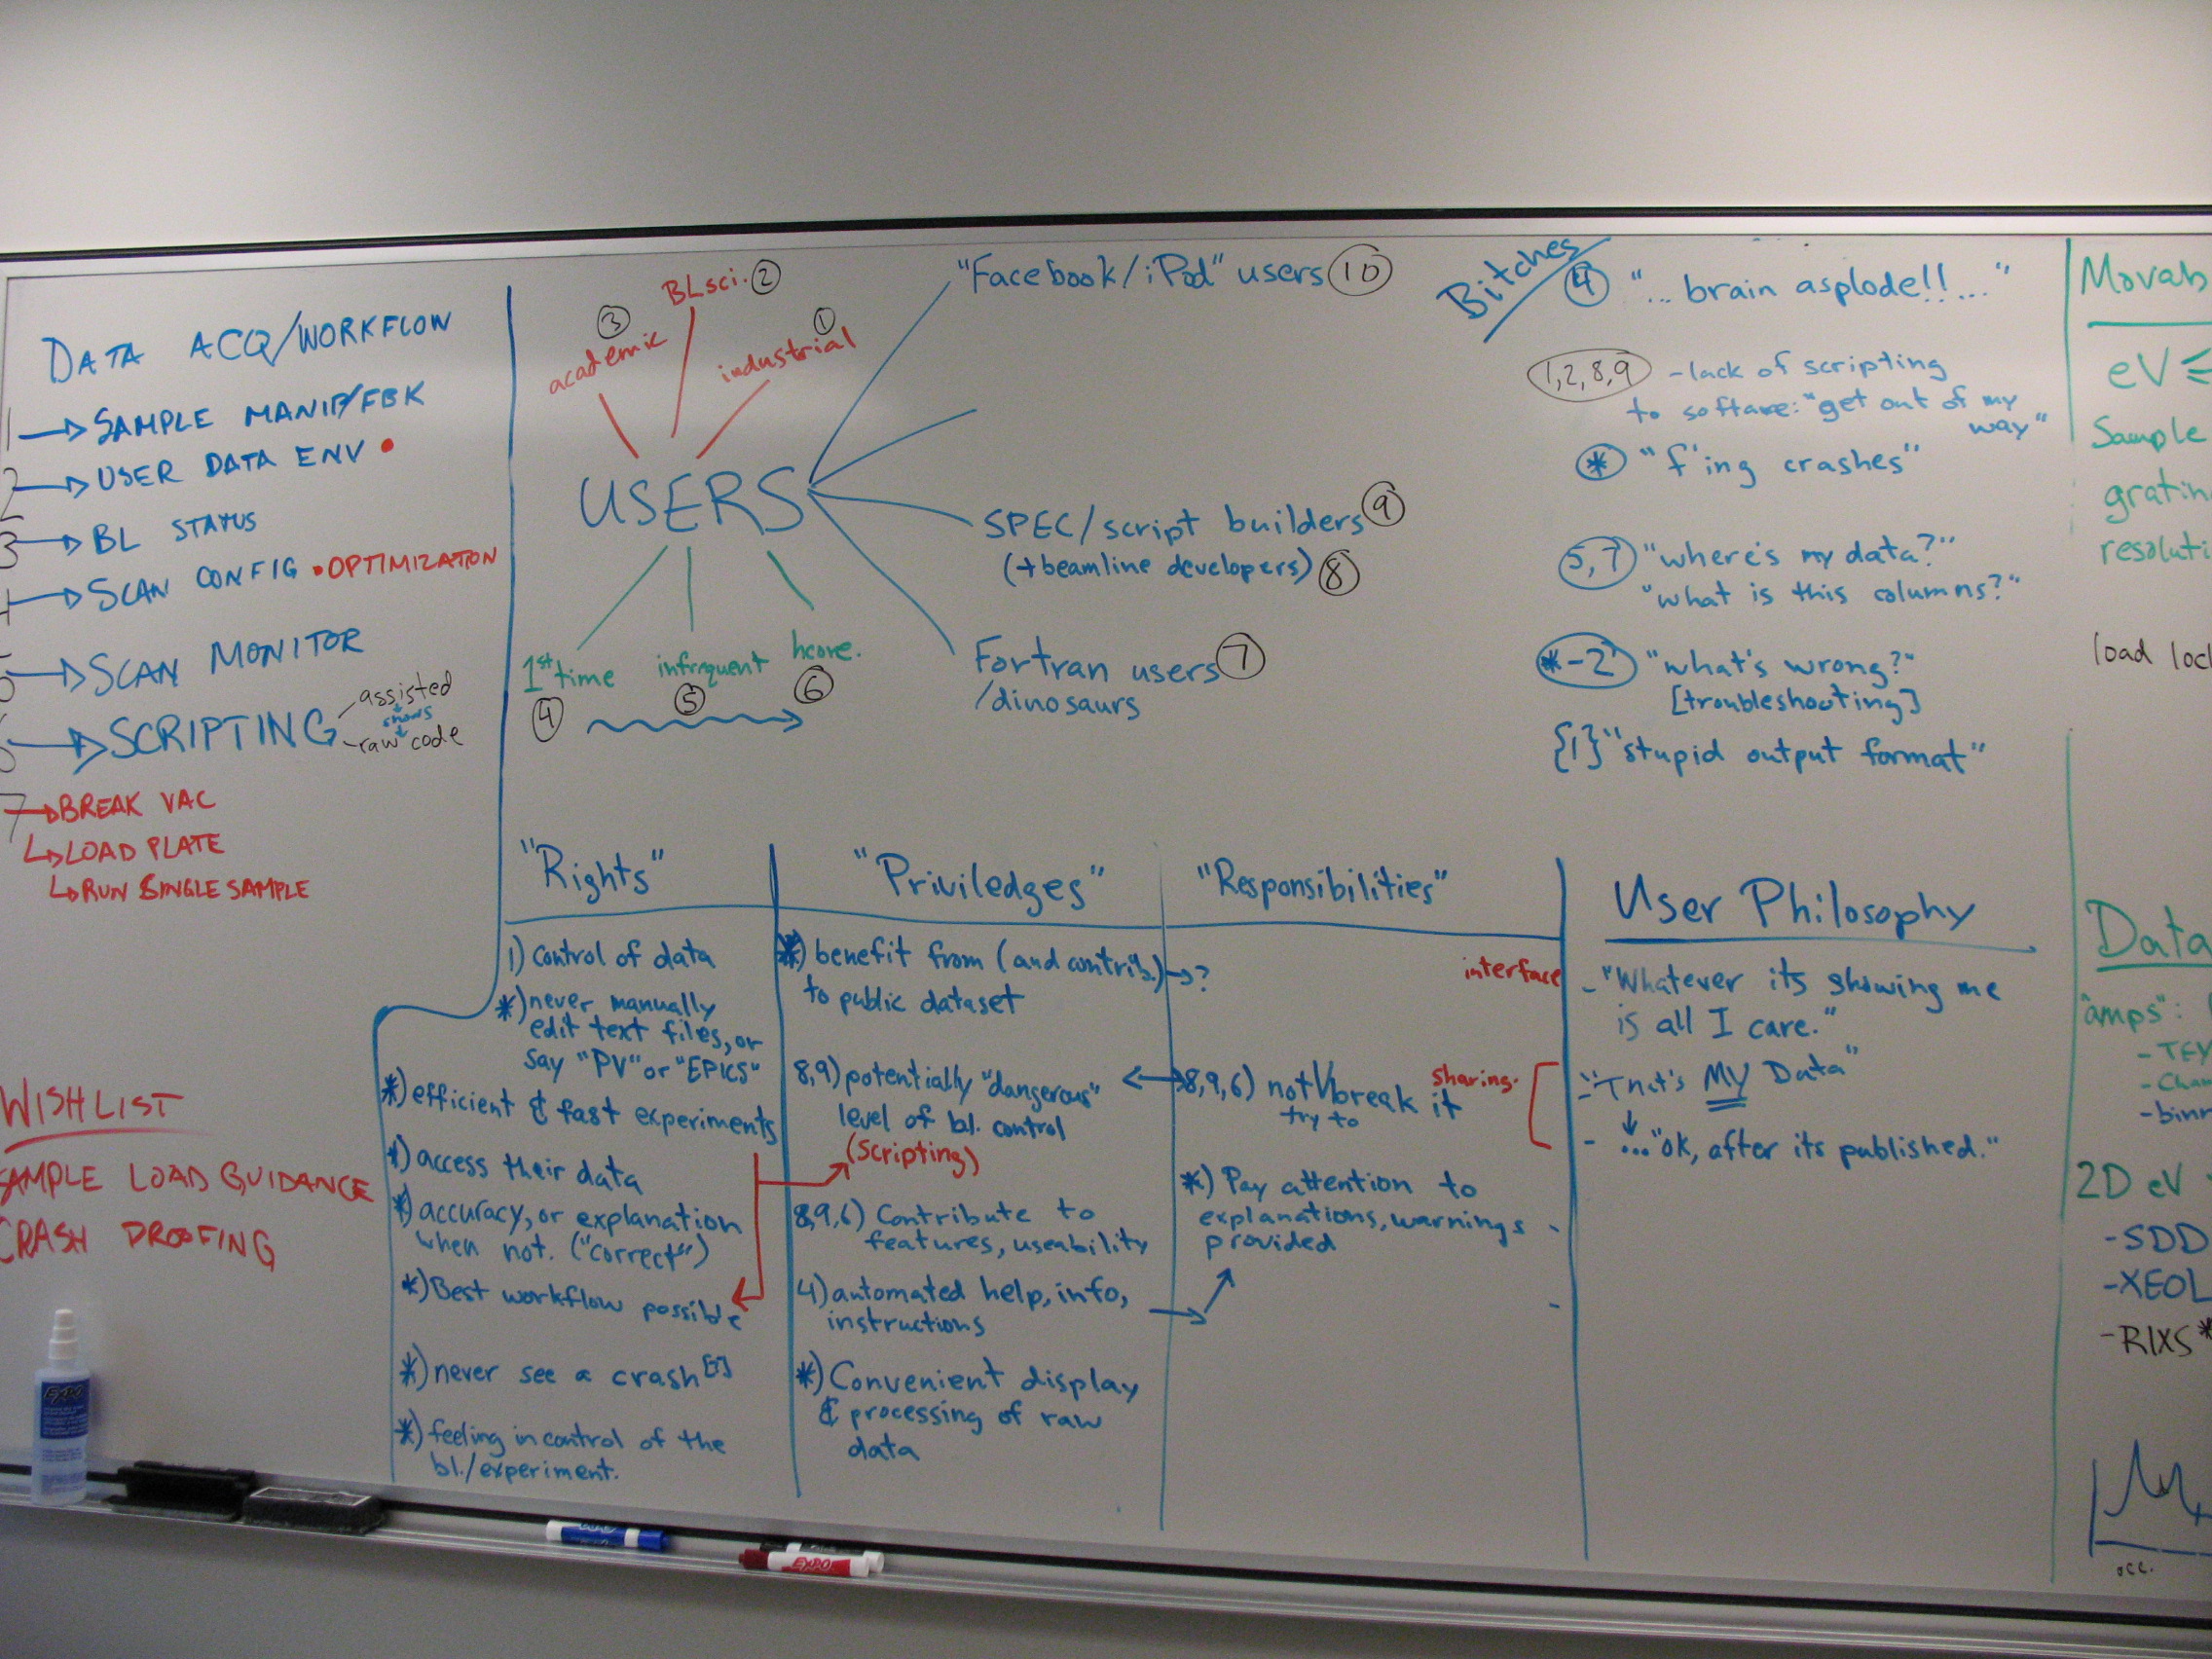 DATA ACQ/WORKFLOW
1 → SAMPLE MANIP/FBK
2 → USER DATA ENV •
3 → BL STATUS
4 → SCAN CONFIG • OPTIMIZATION
→ SCAN MONITOR
→ SCRIPTING
assisted
shows
raw code
7 → BREAK VAC
↳ LOAD PLATE
↳ RUN SINGLE SAMPLE
WISHLIST
SAMPLE LOAD GUIDANCE
CRASH PROOFING
USERS
③ academic
BLsci. ②
① industrial
"Facebook/iPod" users ⑩
SPEC/script builders ⑨
(+beamline developers) ⑧
Fortran users ⑦
/dinosaurs
1st time
④
infrequent
⑤
hcore.
⑥
Bitches
④ "...brain asplode!!..."
1,2,8,9 - lack of scripting
to softare: "get out of my
way"
* "f'ing crashes"
5,7 "where's my data?"
"what is this columns?"
*-2 "what's wrong?"
[troubleshooting]
{1} "stupid output format"
"Rights"
1) control of data
*) never manually
edit text files, or
say "PV" or "EPICS"
*) efficient & fast experiments
*) access their data
*) accuracy, or explanation
when not. ("correct")
*) Best workflow possible
*) never see a crash
*) feeling in control of the
bl./experiment.
"Priviledges"
*) benefit from (and contrib.) → ?
to public dataset
8,9) potentially "dangerous"
level of bl. control
(scripting)
8,9,6) Contribute to
features, useability
4) automated help, info,
instructions
*) Convenient display
& processing of raw
data
"Responsibilities"
8,9,6) not break it
try to
*) Pay attention to
explanations, warnings
provided
User Philosophy
interface
- "Whatever its showing me
is all I care."
sharing.
- "That's MY Data"
- ↓ ..."ok, after its published."
Movab
eV
Sample
gratin
resoluti
load loc
Data
"amps":
- TEY
- Chan
2D eV
-SDD
-XEOL
-RIXS*
occ.
EXPO
EXPO